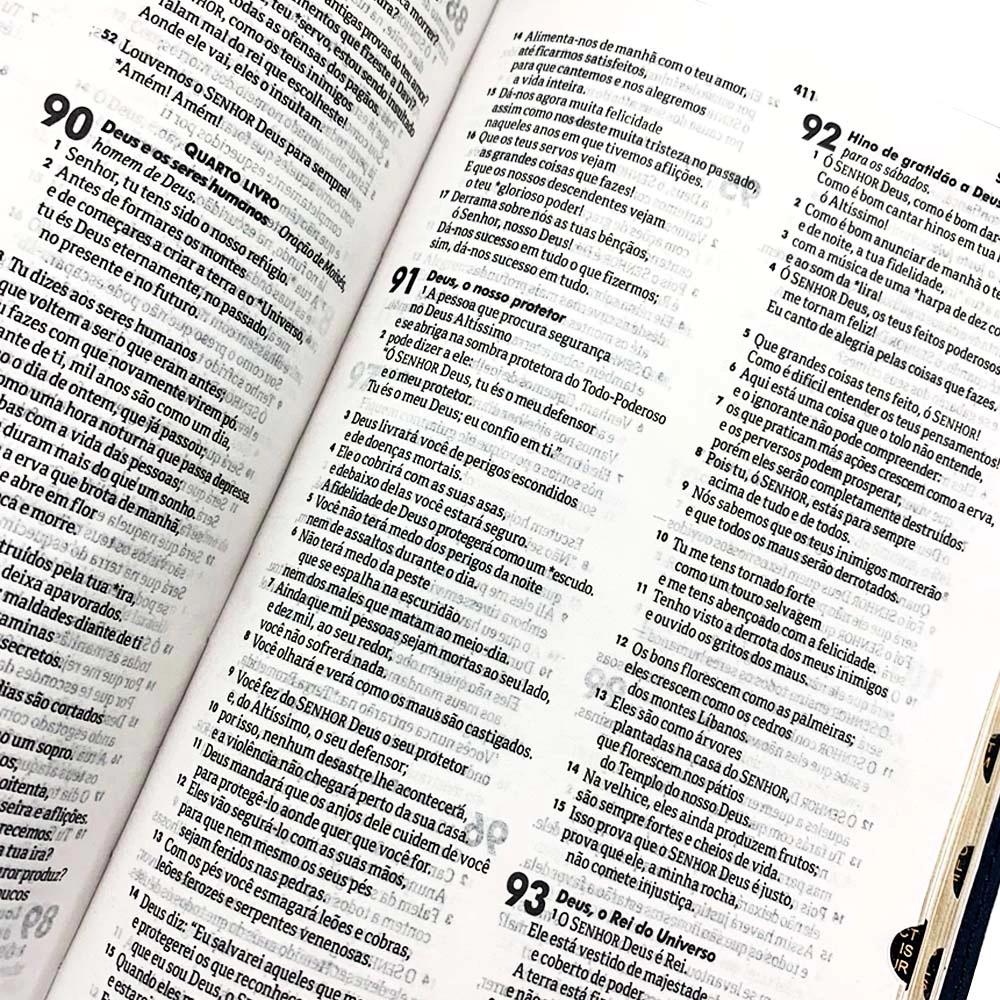 antigas provas do teu amor?
mentos que fizeste a Davi?
teu *servo, estou sendo insultado
todas as ofensas dos pagãos.
SENHOR, como os teus inimigos
falam mal do rei que escolheste!
Aonde ele vai, eles o insultam.
52 Louvemos o SENHOR Deus para sempre!
*Amém! Amém!
QUARTO LIVRO
90 Deus e os seres humanos Oração de Moisés,
homem de Deus.
1 Senhor, tu tens sido o nosso refúgio.
2 Antes de formares os montes
e de começares a criar a terra e o *Universo,
tu és Deus eternamente, no passado,
no presente e no futuro.
3 Tu dizes aos seres humanos
que voltem a ser o que eram antes;
fazes com que novamente virem pó.
ante de ti, mil anos são como um dia,
como o dia de ontem, que já passou;
como uma hora noturna que passa depressa.
bas com a vida das pessoas;
duram mais do que um sonho.
a erva que brota de manhã,
e abre em flor
e morre.
truídos pela tua *ira,
deixa apavorados.
maldades diante de ti
secretos.
dias são cortados
um sopro.
oitenta,
seira e aflições.
a tua ira?
produz?
14 Alimenta-nos de manhã com o teu amor,
até ficarmos satisfeitos,
para que cantemos e nos alegremos
a vida inteira.
15 Dá-nos agora muita felicidade
assim como nos deste muita tristeza no passado,
naqueles anos em que tivemos aflições.
16 Que os teus servos vejam
as grandes coisas que fazes!
E que os nossos descendentes vejam
o teu *glorioso poder!
17 Derrama sobre nós as tuas bênçãos,
ó Senhor, nosso Deus!
Dá-nos sucesso em tudo o que fizermos;
sim, dá-nos sucesso em tudo.
91 Deus, o nosso protetor
1 A pessoa que procura segurança
no Deus Altíssimo
e se abriga na sombra protetora do Todo-Poderoso
2 pode dizer a ele:
"Ó SENHOR Deus, tu és o meu defensor
e o meu protetor.
Tu és o meu Deus; eu confio em ti."
3 Deus livrará você de perigos escondidos
e de doenças mortais.
4 Ele o cobrirá com as suas asas,
e debaixo delas você estará seguro.
A fidelidade de Deus o protegerá como um *escudo.
5 Você não terá medo dos perigos da noite
nem de assaltos durante o dia.
6 Não terá medo da peste
que se espalha na escuridão
nem dos males que matam ao meio-dia.
7 Ainda que mil pessoas sejam mortas ao seu lado,
e dez mil, ao seu redor,
você não sofrerá nada.
8 Você olhará e verá como os maus são castigados.
9 Você fez do SENHOR Deus o seu protetor
e, do Altíssimo, o seu defensor;
10 por isso, nenhum desastre lhe acontecerá,
e a violência não chegará perto da sua casa.
11 Deus mandará que os anjos dele cuidem de você
para protegê-lo aonde quer que você for.
12 Eles vão segurá-lo com as suas mãos,
para que nem mesmo os seus pés
sejam feridos nas pedras.
13 Com os pés você esmagará leões e cobras,
leões ferozes e serpentes venenosas.
14 Deus diz: "Eu salvarei aqueles que me
e protegerei os que reconhecem
que eu sou Deus, o S
15 Quando eles me
e estarei
411
92 Hino de gratidão a Deus
para os sábados.
1 Ó SENHOR Deus, como é bom dar-
Como é bom cantar hinos em tua
ó Altíssimo!
2 Como é bom anunciar de manhã o t
e de noite, a tua fidelidade,
3 com a música de uma *harpa de dez co
e ao som da *lira!
4 Ó SENHOR Deus, os teus feitos poderosos
me tornam feliz!
Eu canto de alegria pelas coisas que fazes.
5 Que grandes coisas tens feito, ó SENHOR!
Como é difícil entender os teus pensamentos!
6 Aqui está uma coisa que o tolo não entende,
e o ignorante não pode compreender:
7 os que praticam más ações crescem como a erva,
e os perversos podem prosperar,
porém eles serão completamente destruídos.
8 Pois tu, ó SENHOR, estás para sempre
acima de tudo e de todos.
9 Nós sabemos que os teus inimigos morrerão
e que todos os maus serão derrotados.
10 Tu me tens tornado forte
como um touro selvagem
e me tens abençoado com a felicidade.
11 Tenho visto a derrota dos meus inimigos
e ouvido os gritos dos maus.
12 Os bons florescem como as palmeiras;
eles crescem como os cedros
dos montes Líbanos.
13 Eles são como árvores
plantadas na casa do SENHOR,
que florescem nos pátios
do Templo do nosso Deus.
14 Na velhice, eles ainda produzem frutos;
são sempre fortes e cheios de vida.
15 Isso prova que o SENHOR Deus é justo,
prova que ele, a minha rocha,
não comete injustiça.
93 Deus, o Rei do Universo
1 O SENHOR Deus é Rei.
Ele está vestido de majestade
e coberto de poder.
A terra está fi